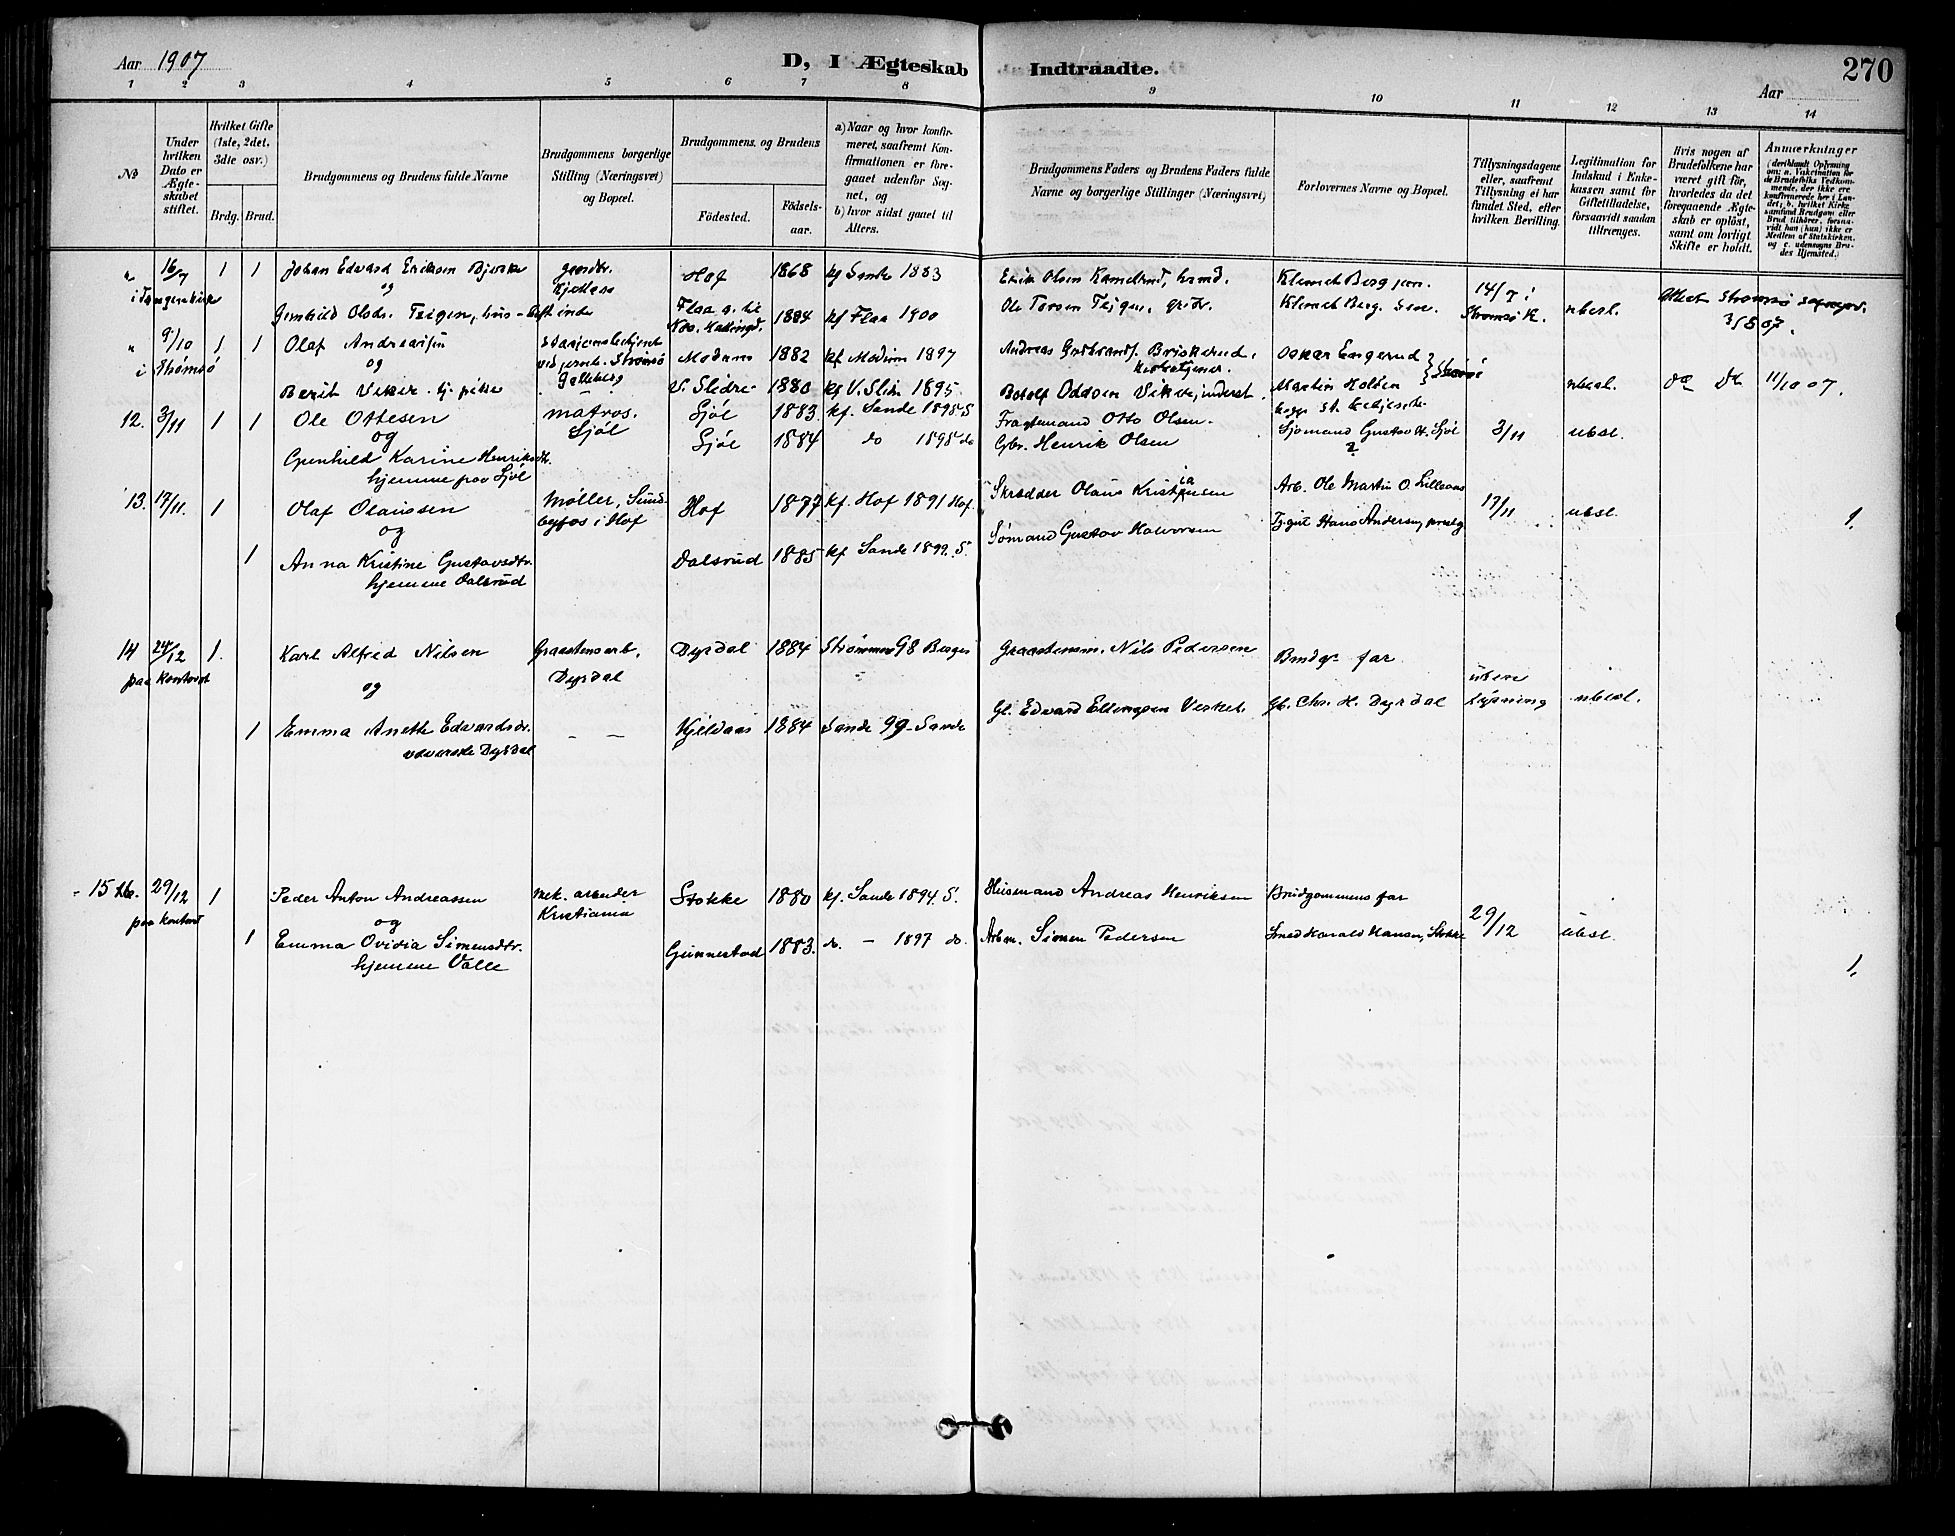 Aar 1907
D, I Ægteskab Indtraadte.
270
Aar
1 2 3 4 5 6 7 8 9 10 11 12 13 14
No
Under hvilken Dato er Ægteskabet stiftet.
Hvilket Gifte (1ste, 2det, 3die osv.)
Brdg. Brud.
Brudgommens og Brudens fulde Navne
Brudgommens borgerlige Stilling (Næringsvei) og Bopæl.
Brudgommens og Brudens
Fødested. Fødselsaar.
a) Naar og hvor konfirmeret, saafremt Konfirmationen er foregaaet udenfor Sognet, og
b) hvor sidst gaaet til Alters.
Brudgommens Faders og Brudens Faders fulde Navne og borgerlige Stillinger (Næringsvei)
Forlovernes Navne og Bopæl.
Tillysningsdagene eller, saafremt Tillysning ei har fundet Sted, efter hvilken Bevilling.
Legitimation for Indskud i Enkekassen samt for Giftetilladelse, forsaavidt saadan tiltrænges.
Hvis nogen af Brudefolkene har været gift før, hvorledes da det foregaaende Ægteskab er opløst, samt om lovligt Skifte er holdt.
Anmærkninger (deriblandt Oplysning om: a. Vakcination for de Brudefolks Vedkommende, der ikke ere konfirmerede her i Landet; b. hvilket Kirkesamfund Brudgom eller Brud tilhører, forsaavidt han (hun) ikke er Medlem af Statskirken, og c. udensogns Brudes Hjemsted.)
" 16/7 1 1 Johan Edvard Eriksen Hof 1868 kf Sande 1883 Erik Olsen Klemet Berg 14/7 i
og
Gunhild Olsdr. Teigen, Flaa 1884 kf Flaa 1900 Ole Torsen Teigen, Klemet Berg. Strømsø K. ubesl. 3/8 07.
" 9/10 1 1 Olaf Andreassen Modum 1882 kf Modum 1897 Andreas Gudbrands. Briskerud, Oskar Engerud
i Strømsø og Strømsø Galleberg Kirketjener. Strømsø
Berit Viker tj. pike V. Slidre 1880 kf V. Slidre 1895 Botolf Oddsen Martin Holden ubesl. 11/10 07.
12. 3/11 1 1 Ole Ottesen matros. Sjøl Sjøl 1883 kf. Sande 1898 S Fragtemand Otto Olsen. Sjømand Gustav H. Sjøl 3/11 ubsl.
og Sjøl 1884 do 1898 do Gbr. Henrik Olsen ?
Gunhild Karine Henriksdtr.
hjemme paa Sjøl
13. 17/11. 1 Olaf Olaussen Møller, Sundbyfos i Hof Hof 1877 kf. Hof 1891 Hof. Skrædder Olaus Kristiansen Arb. Ole Martin O. Lilleaas 17/11 ubsl. 1.
og Sømand Gustav Halvorsen Hans Andersen
1 Anna Kristine Gustavsdtr. Dalsrud 1885 kf. Sande 1899. S.
hjemme Dalsrud
14 24/12 1. Karl Alfred Nilsen Graastensarb, Dyrdal Dyrdal 1884 Strømmen 98 Graastensm. Nils Pedersen Brudgs far uten lysning ubesl.
paa kontoret og
1 Emma Anette Edvardsdr. – – Kjeldaas 1884 Sande 99 – Sande Gl. Edvard Ellingsen Gb. Chr. H. Dyrdal
Dyrdal
15 29/12 1 Peder Anton Andreassen Mek. arbeider Kristiania Stokke 1880 kf. Sande 1894. S. Husmand Andreas Henriksen Brudgommens far 29/12 ubsl.
paa kontoret og
1 Emma Ovidia Simensdtr. Gunnestad 1883. do. – 1897 do. Arbm. Simen Pedersen Smed Harald Hansen, Stokke 1.
hjemme Valle